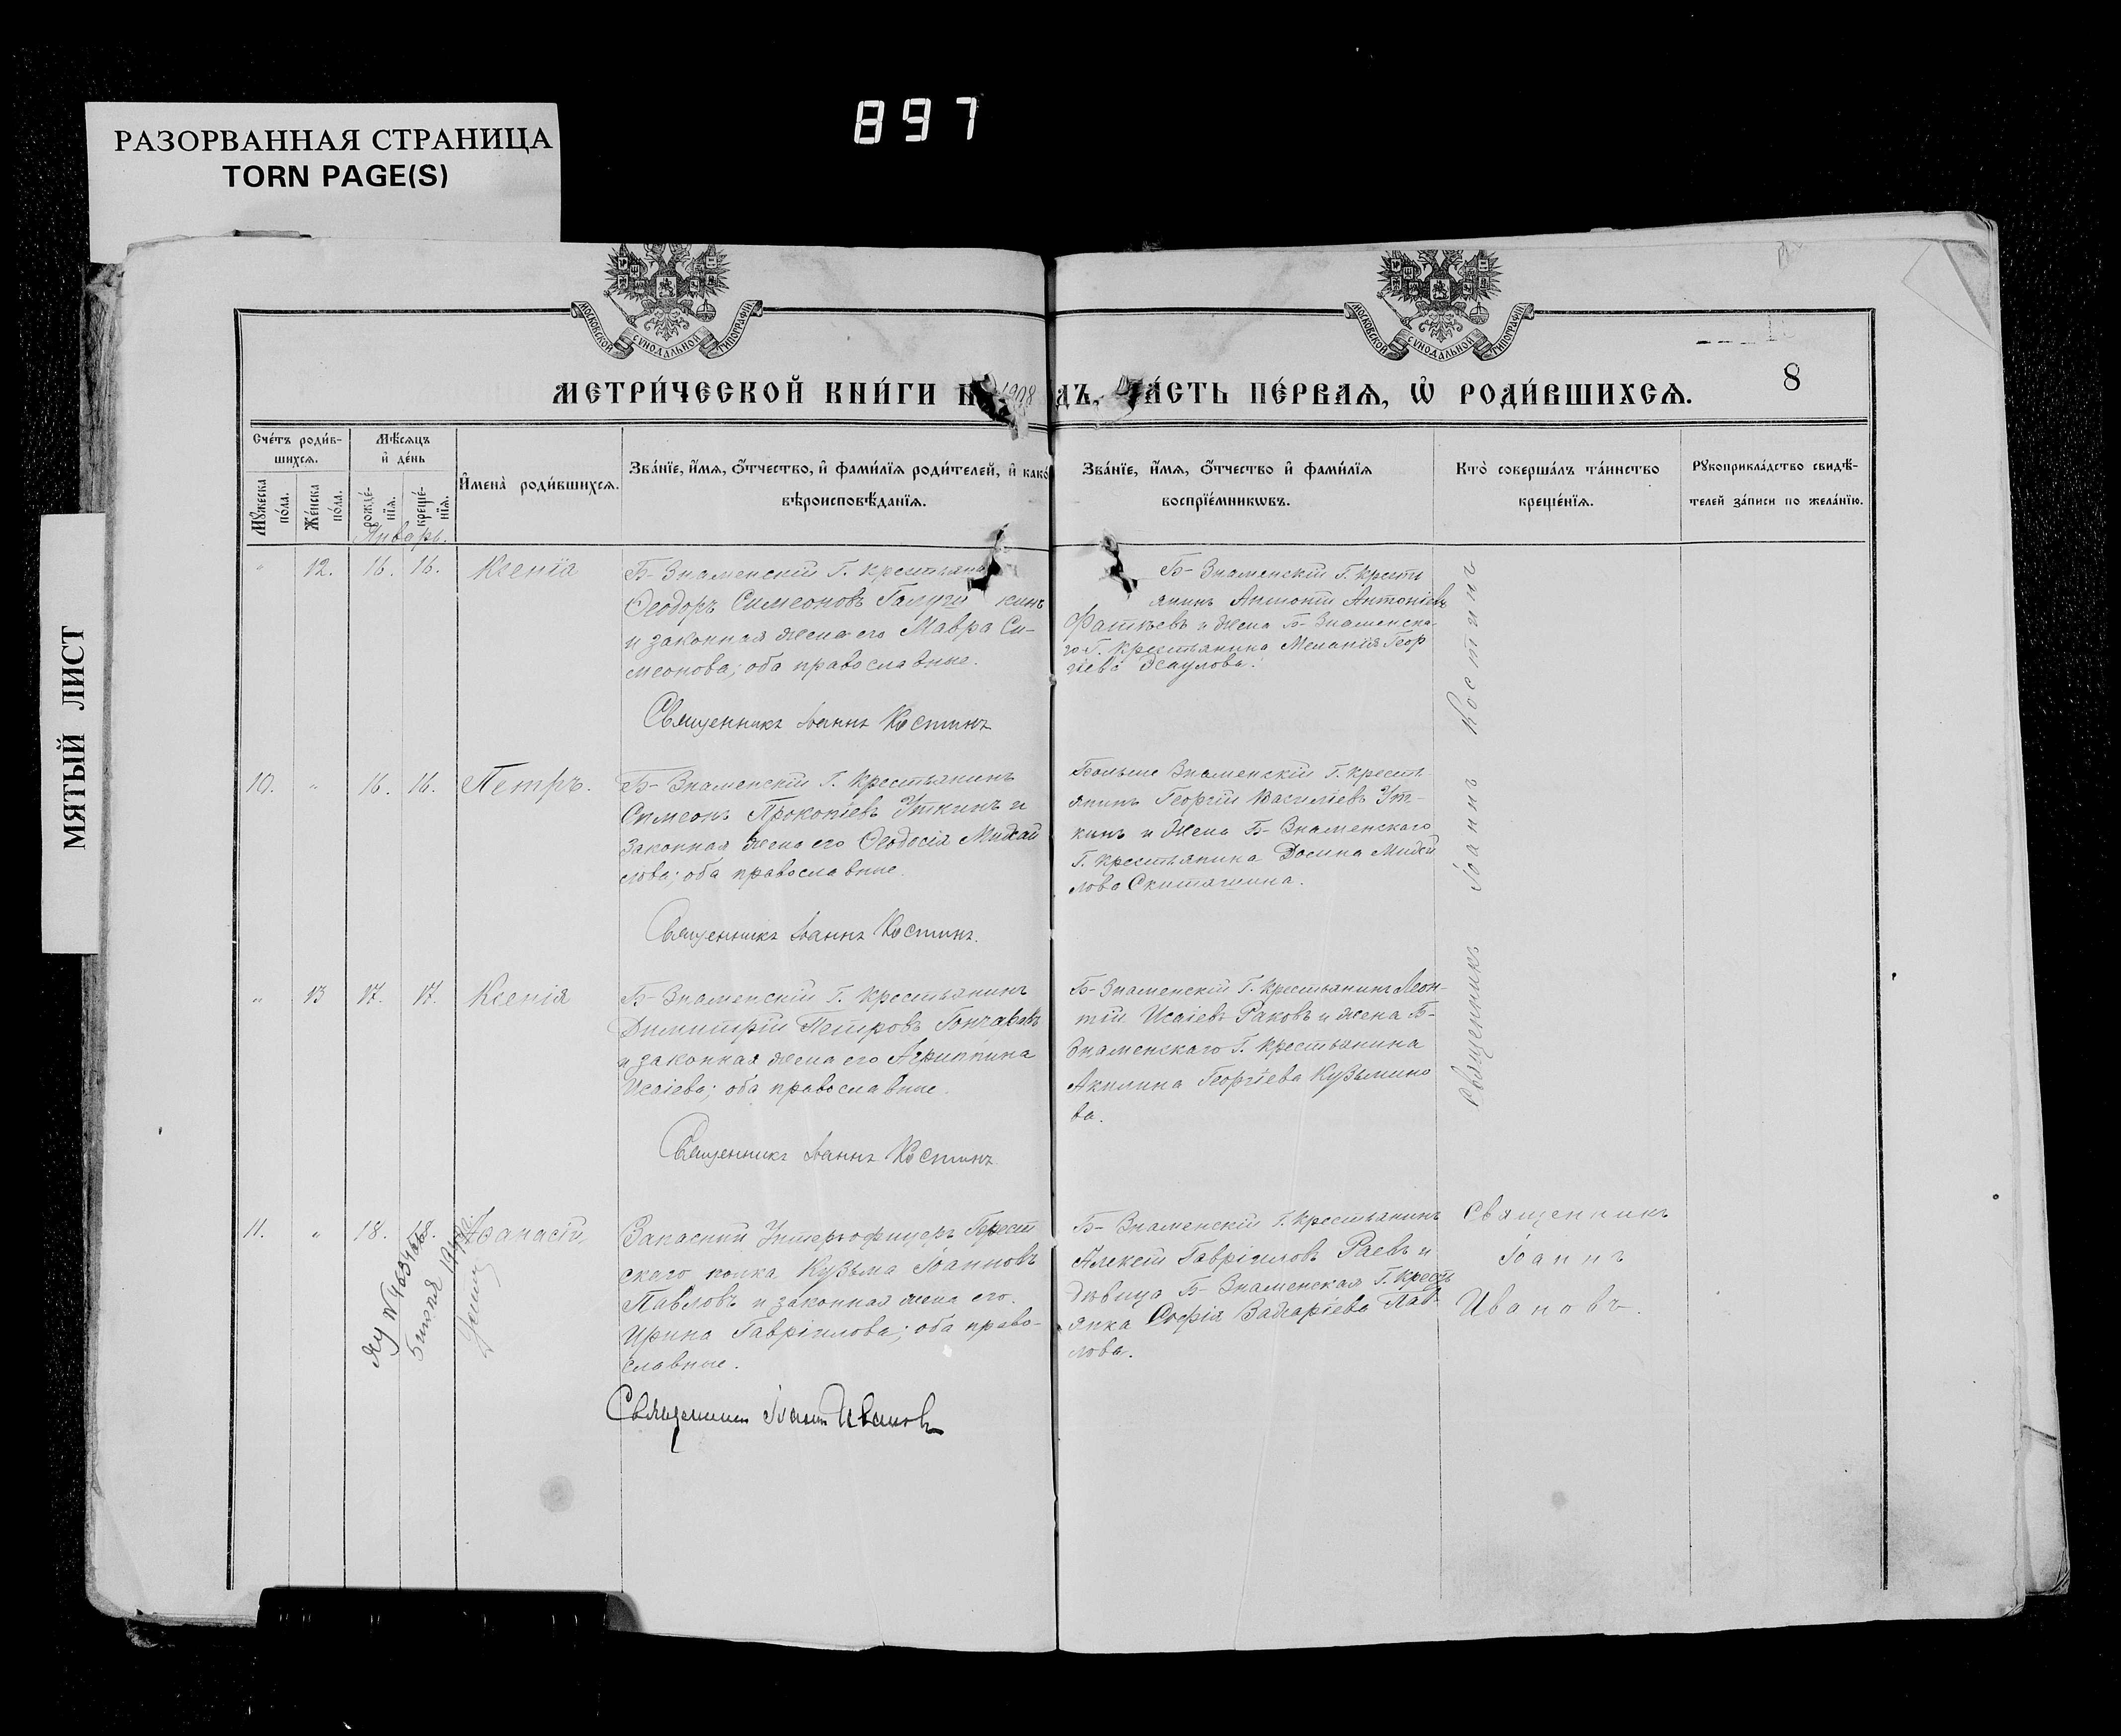 897
РАЗОРВАННАЯ СТРАНИЦА
TORN PAGE(S)
МЯТЫЙ ЛИСТ
МОСКОВСКОЙ СѴНОДАЛЬНОЙ ТИПОГРАФІИ
МОСКОВСКОЙ СѴНОДАЛЬНОЙ ТИПОГРАФІИ
8
МЕТРИ́ЧЕСКОЙ КНИ́ГИ Н 1908 ДЪ, ЧА́СТЬ ПЕ́РВАЯ, Ѡ РОДИ́ВШИХСЯ.
Сче́тъ роди́в-
шихся.
Мꙋ́жеска по́ла.
Же́нска по́ла.
Мѣ́сяцъ
и҆ де́нь
рожде́-нїя.
креще́-нїя.
И҆мена̀ роди́вшихся.
Зва́нїе, и҆́мя, ѻ҆́тчество, и҆ фами́лїя роди́телей, и҆ како́
вѣроисповѣ́данїя.
Зва́нїе, и҆́мя, ѻ҆́тчество и҆ фами́лїя
воспрїе́мникѡвъ.
Кто̀ соверша́лъ та́инство
креще́нїя.
Рꙋкоприкла́дство свидѣ́-
телей за́писи по жела́нїю.
Январь.
" 12. 16. 16. Ксенія
Б-Знаменскій Г. крестьян
Ѳеодоръ Симеоновъ Галуш кинъ
и законная жена его Мавра Си-
меонова; оба православные.
Священникъ Іоаннъ Костинъ
Б-Знаменскій Г. крестъ
янинъ Антоній Антоніевъ
и жена Б-Знаменска-
го Г. крестьянина Меланія Геор
гіева Есаулова.
10. " 16. 16. Петръ.
Б-Знаменскій Г. крестьянинъ
Симеонъ Прокопіевъ Уткинъ и
законная жена его Ѳеодосія Михай
лова; оба православные.
Священникъ Іоаннъ Костинъ.
Больше Знаменскій Г. крестъ
янинъ Георгій Василіевъ Ут-
кинъ и жена Б-Знаменскаго
Г. крестьянина Домна Михай
лова
" 13 17. 17. Ксенія
Б-Знаменскій Г. крестьянинъ
Димитрій Петровъ Гончаровъ
и законная жена его Агриппина
Исаіева; оба православные.
Священникъ Іоаннъ Костинъ
Б-Знаменскій Г. крестьянинъ Леон-
тій Исаіевъ Раковъ и жена Б-
Знаменскаго Г. крестьянина
Акилина Георгіева Кузьмино
ва.
Священникъ Іоаннъ Костинъ
11. " 18. 18. Аѳанасій
Запасный Унтеръ-офицеръ Брест
скаго полка Кузьма Іоанновъ
Павловъ и законная жена его
Ирина Гавріилова; оба право-
славные.
Священникъ Іоаннъ Ивановъ
Б-Знаменскій Г. крестьянинъ
Алексій Гавріиловъ Раевъ и
дѣвица Б-Знаменская Г. кресть
янка Софія Захаріева Пав-
лова.
Священникъ
Іоаннъ
Ивановъ.